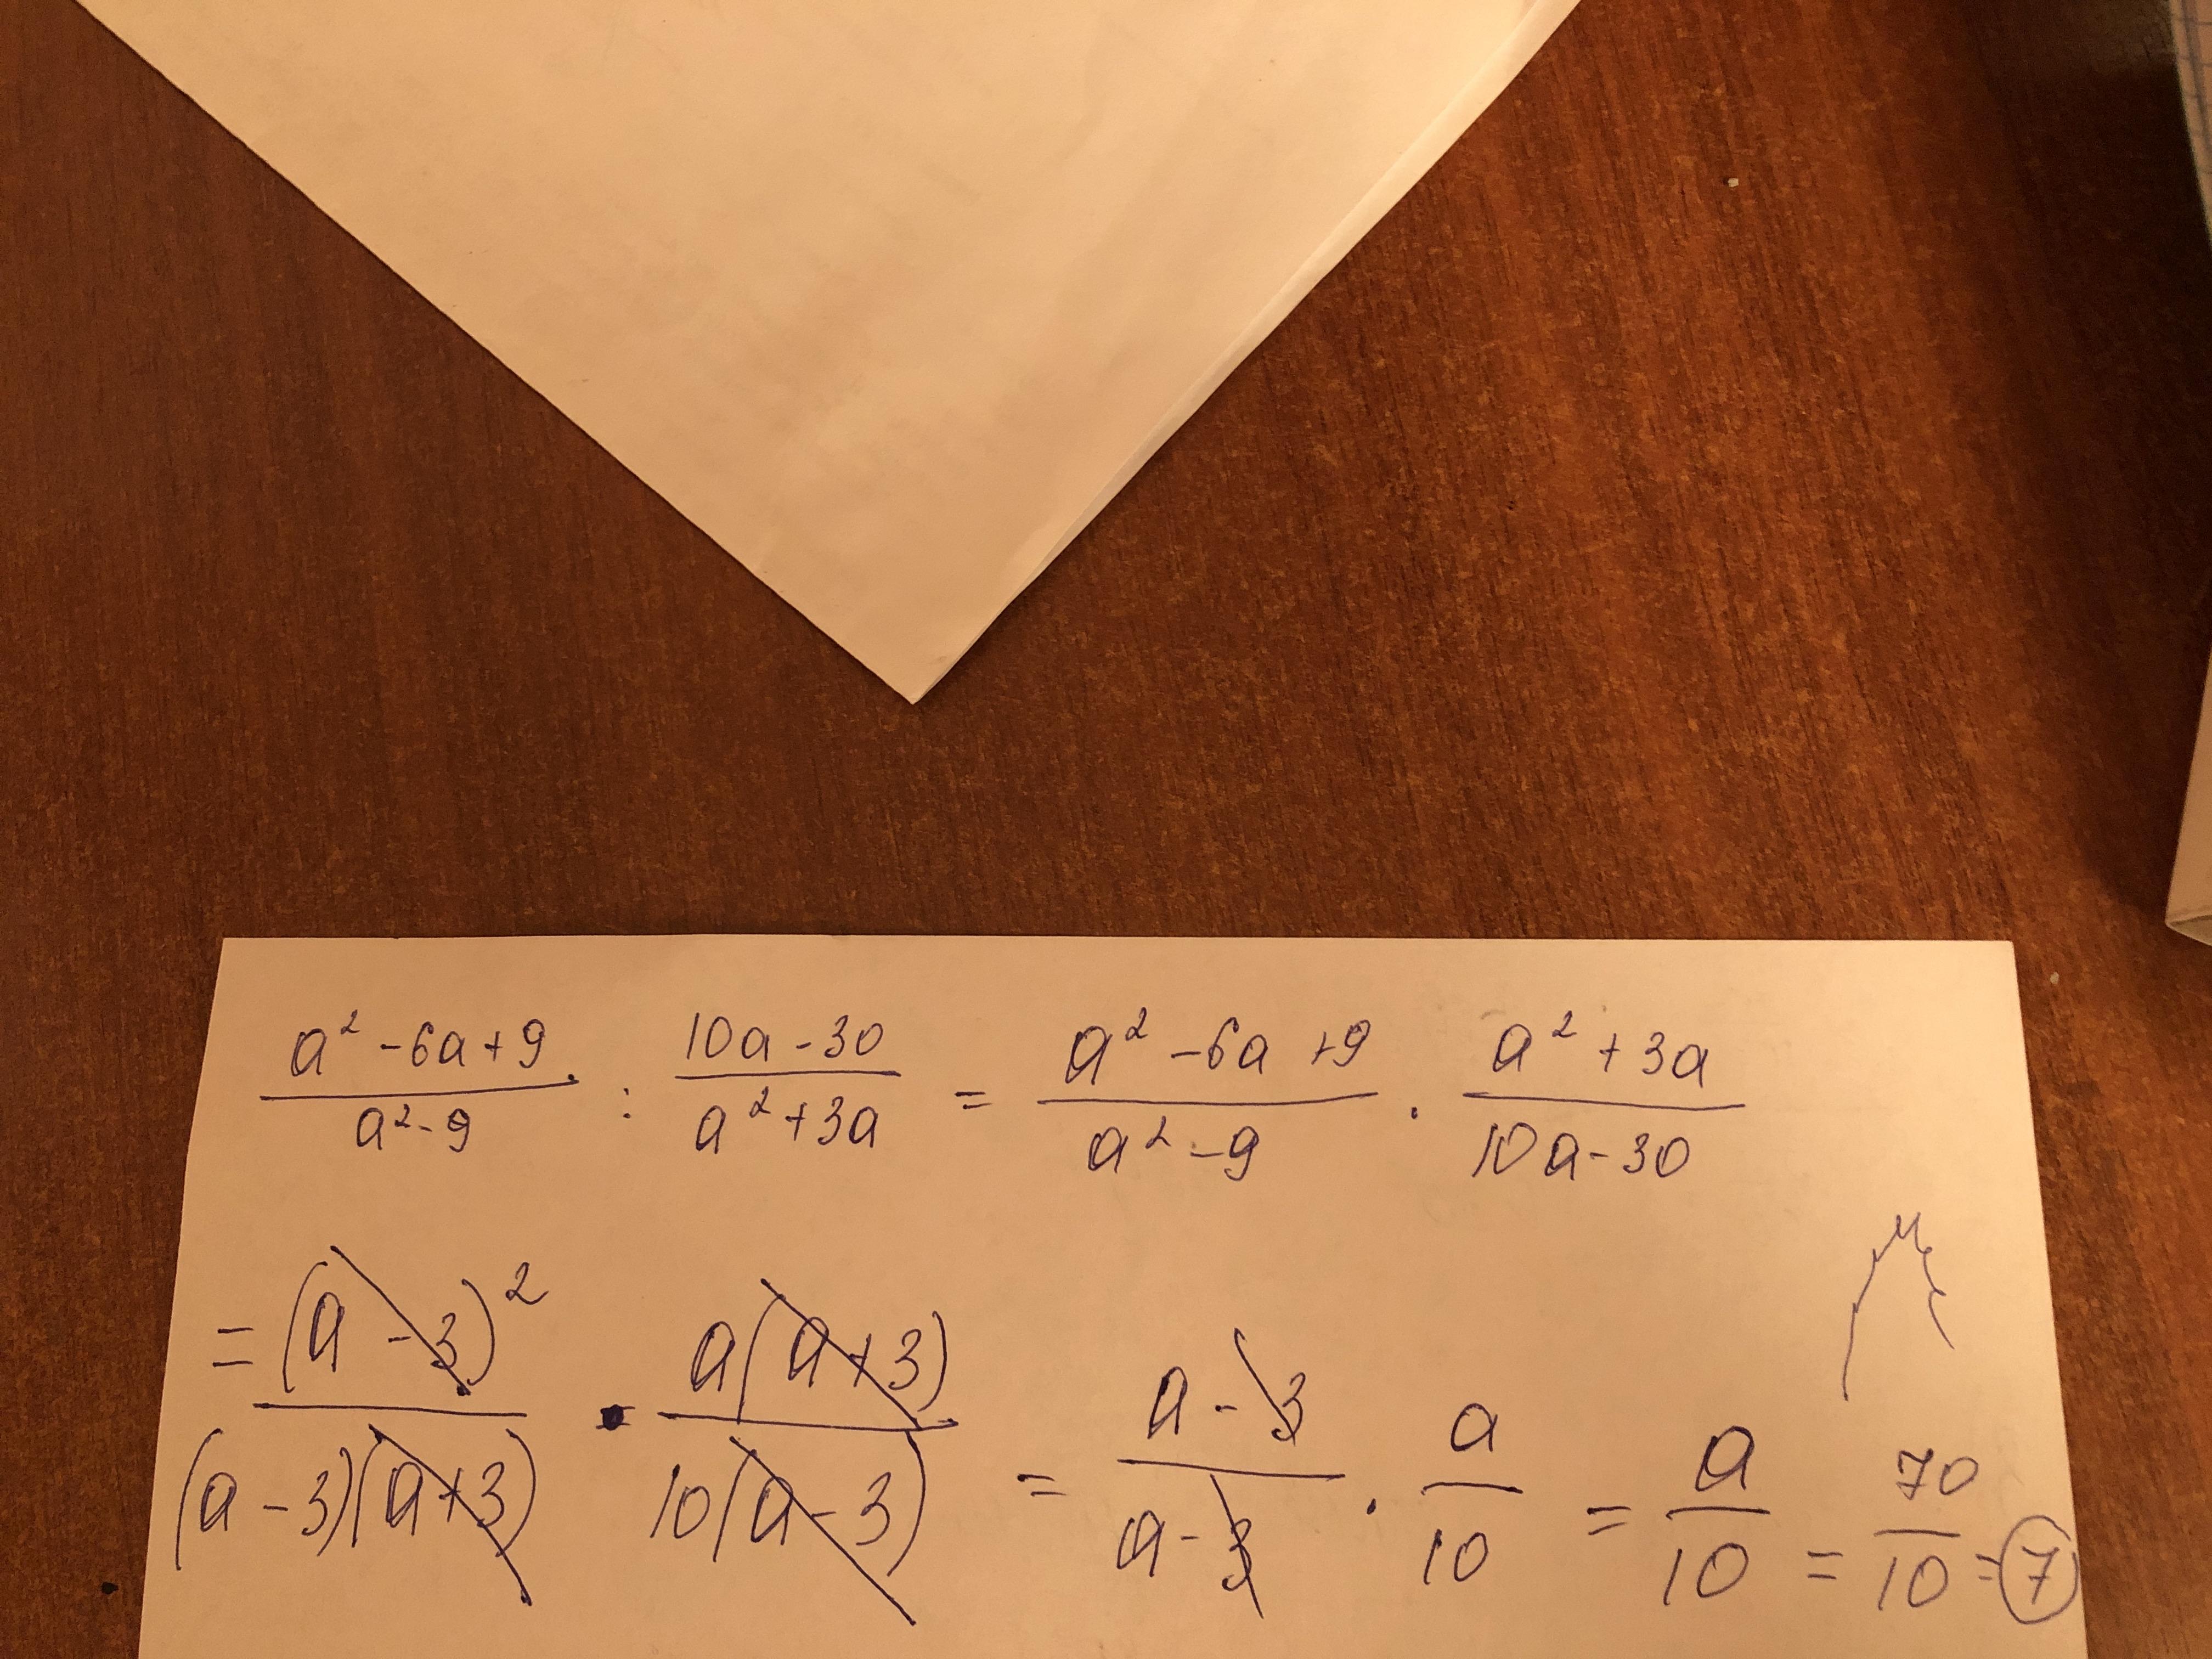 (a² - 6a + 9)/(a² - 9) : (10a - 30)/(a² + 3a) = (a² - 6a + 9)/(a² - 9) · (a² + 3a)/(10a - 30)
= (a - 3)²/((a - 3)(a + 3)) · a(a + 3)/(10(a - 3)) = (a - 3)/(a - 3) · a/10 = a/10 = 70/10 = 7